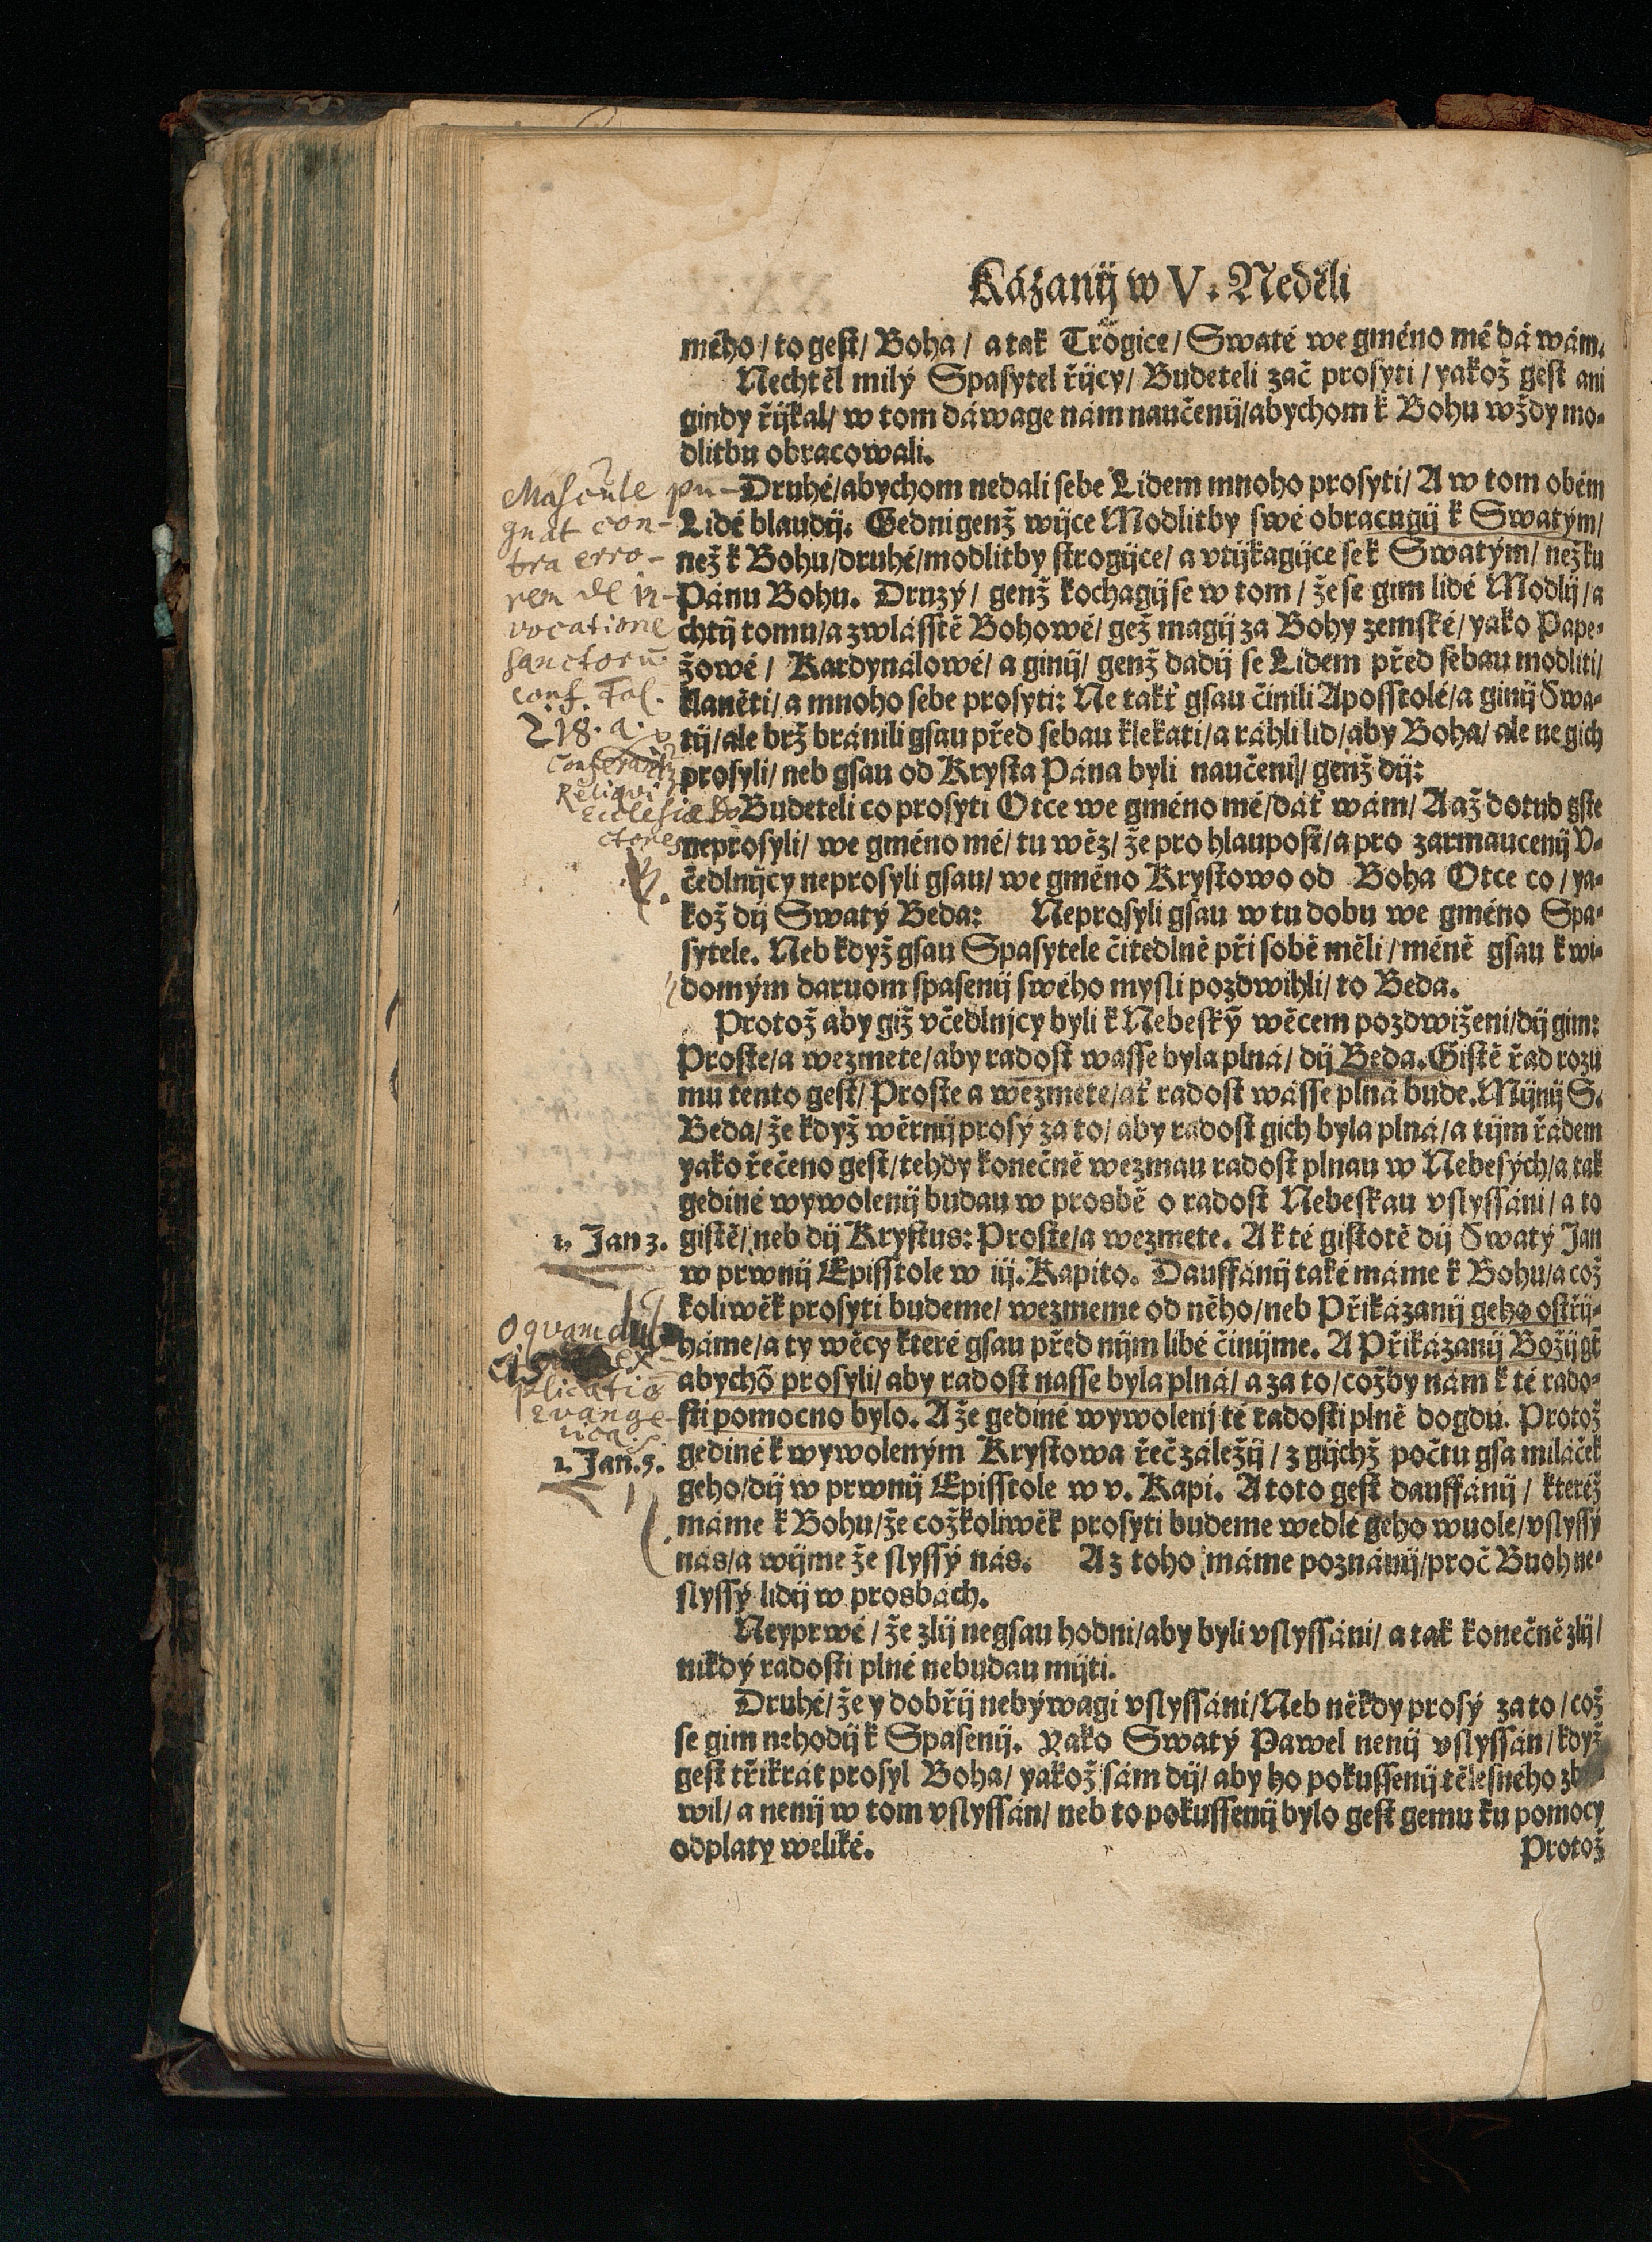 Kázanij w V. Neděli
mého / to gest / Boha / a tak Trögice / Swaté we gméno mé dá wám.
Nechtěl milý Spasytel řijcy / Budeteli zač prosyti / yakož gest ani
gindy řijkal / w tom dáwage nám naučenij / abychom k Bohu wždy mo-
dlitbu obracowali.
Masculè pu-
gnat con-
tra erro-
rem de in-
vocatione
sanctorū
conf. Fol.
218. a.
Reliqui
Druhé / abychom nedali sebe Lidem mnoho prosyti / A w tom obém
Lidé blaudij. Gedni genž wijce Modlitby swé obracugij k Swatým /
než k Bohu / druhé / modlitby strogijce / a vtijkagijce se k Swatým / než ku
Pánu Bohu. Druzý / genž kochagij se w tom / že se gim lidé Modlij / a
chtij tomu / a zwlásstě Bohowé / gež magij za Bohy zemské / yako Pape-
žowé / Kardynálowé / a ginij / genž dadij se Lidem před sebau modliti /
klaněti / a mnoho sebe prosyti: Ne takť gsau činili Aposstolé / a ginij Swa-
tij / ale brž bránili gsau před sebau klekati / a ráhli lid / aby Boha / ale ne gich
prosyli / neb gsau od Krysta Pána byli naučeni / genž dij:
Budeteli co prosyti Otce we gméno mé / dáť wám / A až dotud gste
neprosyli / we gméno mé / tu wěz / že pro hlaupost / a pro zarmaucenij V-
čedlnijcy neprosyli gsau / we gméno Krystowo od Boha Otce co / ya-
kož dij Swatý Beda: Neprosyli gsau w tu dobu we gméno Spa-
sytele. Neb když gsau Spasytele čitedlně při sobě měli / méně gsau k wi-
domým daruom spasenij swého mysli pozdwihli / to Beda.
Protož aby giž včedlnjcy byli k Nebeský̃ wěcem pozdwiženi / dij gim:
Proste / a wezmete / aby radost wasse byla plná / dij Beda. Gistě řad rozu
mu tento gest / Proste a wezmete / ať radost wásse plná bude. Mijnij S.
Beda / že když wěrnij prosý za to / aby radost gich byla plná / a tijm řádem
yako řečeno gest / tehdy konečně wezmau radost plnau w Nebesých / a tak
gediné wywolenij budau w prosbě o radost Nebeskau vslyssáni / a to
1. Jan 3.
gistě / neb dij Krystus: Proste / a wezmete. A k té gistotě dij Swatý Jan
w prwnij Episstole w iij. Kapito. Dauffánij také máme k Bohu / a což
koliwěk prosyti budeme / wezmeme od něho / neb Přikázanij geho ostřij-
háme / a ty wěcy které gsau před nijm libé činijme. A Přikázanij Božij gt̄
abychō prosyli / aby radost nasse byla plná / a za to / což by nám k té rado-
sti pomocno bylo. A že gediné wywolenj té radosti plně dogdú. Protož
O quam
ex-
plicatio
1. Jan. 5.
gediné k wywoleným Krystowa řeč záležij / z gijchž počtu gsa miláček
geho / dij w prwnij Episstole w v. Kapi. A toto gest dauffánij / kteréž
máme k Bohu / že cožkoliwěk prosyti budeme wedlé geho wuole / vslyssý
nás / a wijme že slyssý nás. A z toho máme poznánij / proč Buoh ne-
slyssý lidij w prosbách.
Neyprwé / že zlij negsau hodni / aby byli vslyssáni / a tak konečně zlij /
nikdý radosti plné nebudau mijti.
Druhé / že y dobřij nebýwagi vslyssáni / Neb někdy prosý za to / což
se gim nehodij k Spasenij. Yako Swatý Pawel nenij vslyssán / když
gest třikrát prosyl Boha / yakož sám dij / aby ho pokussenij tělesného zba-
wil / a nenij w tom vslyssán / neb to pokussenij bylo gest gemu ku pomocy
odplaty weliké.
Protož